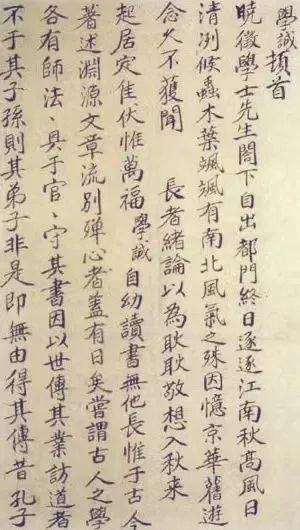 學誠頓首
曉徵學士先生閣下自出都門終日逐逐江南秋高風日
清冽候蟲木葉颯颯有南北風氣之殊因憶京華舊遊
念久不獲聞　長者緒論以為耿耿敬想入秋来
起居定佳伏惟萬福學誠自幼讀書無他長惟于古今
著述淵源文章流别殫心者蓋有日矣嘗謂古人之學
各有師法、具于官、守其書因以世傳其業訪道者
不于其子孫則其弟子非是即無由得其傳昔孔子